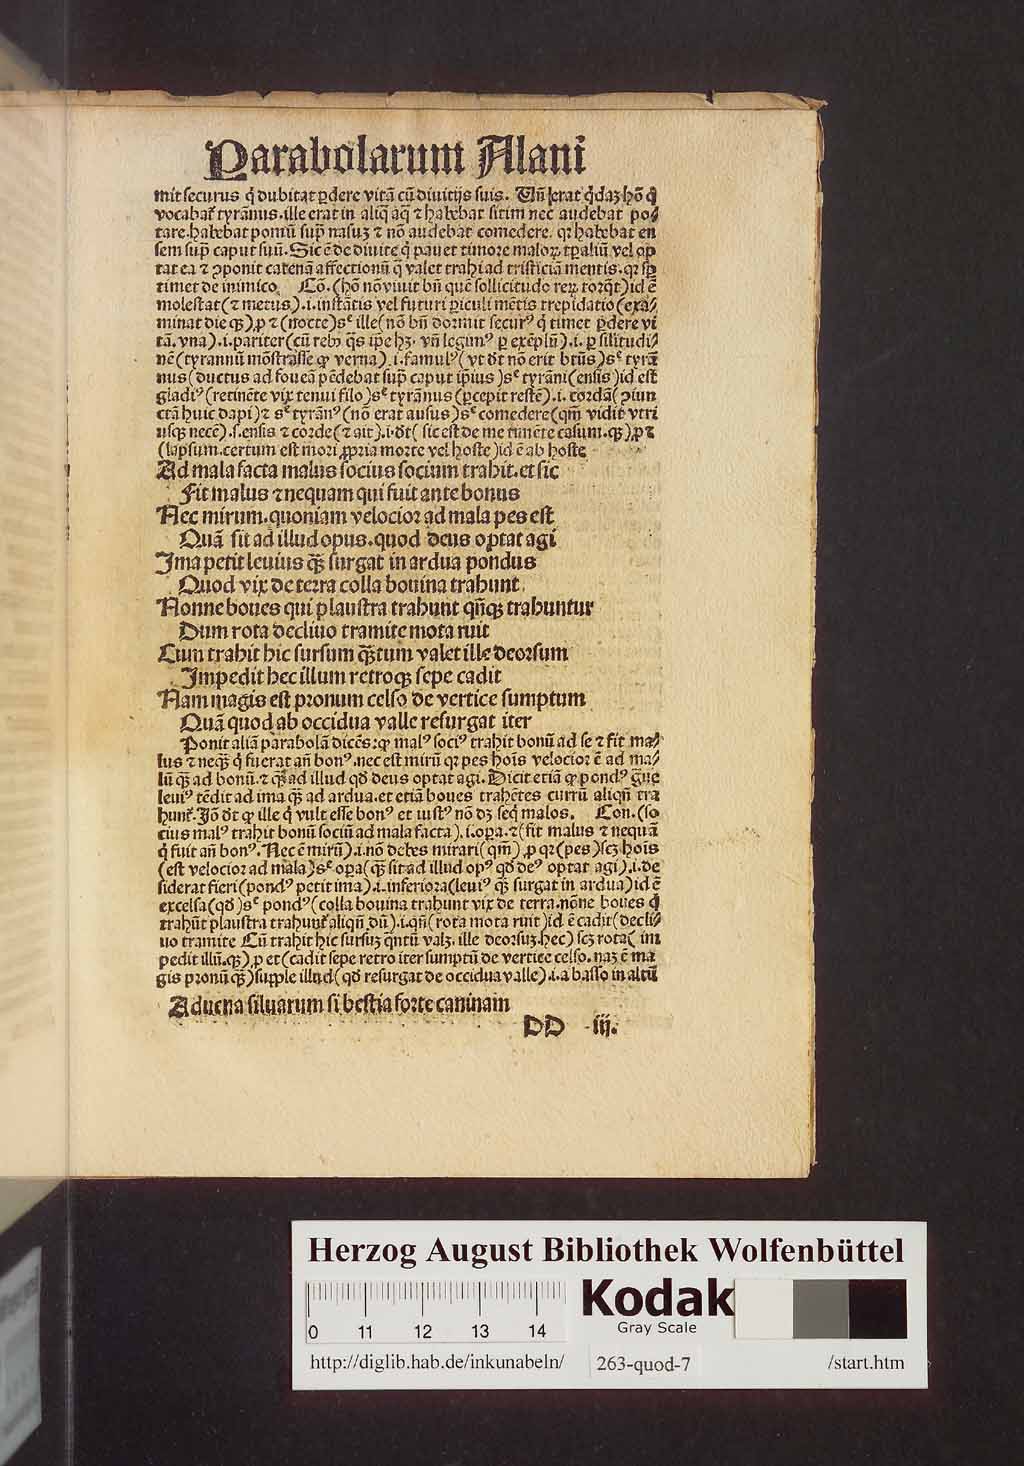 Parabolarum Alani
mit securus q̄ dubitat ꝑdere vitā cū diuitijs suis. Uñ erat q̄daȝ hō q̄
vocabat̄ tyrānus. ille erat in aliq̄ aq̄ ⁊ habebat sitim nec audebat po⸗
tare. habebat pomū sup̄ nasuȝ ⁊ nō audebat comedere. qꝛ habebat en
sem sup̄ caput suū. Sic ē de diuite q̄ pauet timore maloꝝ. vel
tat ea ⁊ ꝯponit catenā affectionū q̄ valet trahi ad tristiciā mentis. qꝛ sp̄
timet de inimico. Cō. (hō nō viuit bn̄ quē sollicitudo reꝝ torq̄t) id ē
molestat (⁊ metus) .i. instātis vel futuri ꝑiculi mētis trepidatio (exa⸗
minat die qꝫ) ꝓ ⁊ (nocte) sꝫ ille (nō bn̄ dormit securꝰ q̄ timet ꝑdere vi
tā. vna) .i. pariter (cū reb⁹ q̄s ip̄e hȝ. vñ legunꝰ ꝑ exēplū) .i. ꝑ silitudi⸗
nē (tyrannū mōstrasse ꝙ verna) .i. famulꝰ (vt dt̄ nō erit btūs) sꝫ tyrā
nus (ductus ad foueā pēdebat sup̄ caput ip̄ius) sꝫ tyrāni (ensis) id est
gladiꝰ (retinēte vix tenui filo) sꝫ tyrānus (ꝑcepit restē) .i. cordā (ꝯiun
ctā huic dapi) ⁊ sꝫ tyrānꝰ (nō erat ausus) sꝫ comedere (qm̄ vidit vtri
usqꝫ necē) .s. ensis ⁊ corde (⁊ ait) .i. dt̄ (sic est de me timēte casum. qꝫ) ꝓ ⁊
(lapsum. certum est mori ꝓpria morte vel hoste) id ē ab hoste
Ad mala facta malus socius socium trahit. et sic
Fit malus ⁊ nequam qui fuit ante bonus
Nec mirum. quoniam velocior ad mala pes est
Quā sit ad illud opus. quod deus optat agi
Ima petit leuius qꝫ̄ surgat in ardua pondus
Quod vix de terra colla bouina trahunt
Nonne boues qui plaustra trahunt qn̄qꝫ trahuntur
Dum rota decliuo tramite mota ruit
Cum trahit hic sursum qꝫ̄tum valet ille deorsum
Impedit hec illum retroqꝫ sepe cadit
Nam magis est pronum celso de vertice sumptum
Quā quod ab occidua valle resurgat iter
Ponit aliā parabolā dicēs: ꝙ malꝰ sociꝰ trahit bonū ad se ⁊ fit ma⸗
lus ⁊ neqꝫ̄ q̄ fuerat an̄ bonꝰ. nec est mirū qꝛ pes hoīs velocior ē ad ma⸗
lū qꝫ̄ ad bonū. ⁊ qꝫ̄ ad illud qd̄ deus optat agi. Dicit etiā ꝙ pondꝰ gͣue
leuiꝰ tēdit ad ima qꝫ̄ ad ardua. et etiā boues trahētes currū aliqn̄ tra
hunt̄. Iō dt̄ ꝙ ille q̄ vult esse bonꝰ et iustꝰ nō dȝ seq̄ malos. Con. (so
cius malꝰ trahit bonū sociū ad mala facta) .i. oꝑa. ⁊ (fit malus ⁊ nequā
q̄ fuit an̄ bonꝰ. Nec ē mirū) .i. nō debes mirari (qm̄) ꝓ qꝛ (pes) scȝ hoīs
(est velocior ad mala) sꝫ oꝑa (qꝫ̄ sit ad illud opꝰ qd̄ deꝰ optat agi) .i. de
siderat fieri (pondꝰ petit ima) .i. inferiora (leuiꝰ qꝫ̄ surgat in ardua) id ē
excelsa (qd̄) sꝫ pondꝰ (colla bouina trahunt vix de terra. nōne boues q̄
trahūt plaustra trahunt̄ aliqn̄ dū) .i. qn̄ (rota mota ruit) id ē cadit (decli⸗
uo tramite Cū trahit hic sursuȝ q̄ntū valȝ. ille deorsuȝ. hec) scȝ rota (im
pedit illū. qꝫ) ꝓ et (cadit sepe retro iter sumptū de vertice celso. naȝ ē ma
gis pronū qꝫ̄) supple illud (qd̄ resurgat de occidua valle) .i. a basso in altū
Aduena siluarum si bestia forte caninam
DD iij.
Herzog August Bibliothek Wolfenbüttel
0 11 12 13 14
Kodak
Gray Scale
http://diglib.hab.de/inkunabeln/ 263-quod-7 /start.htm